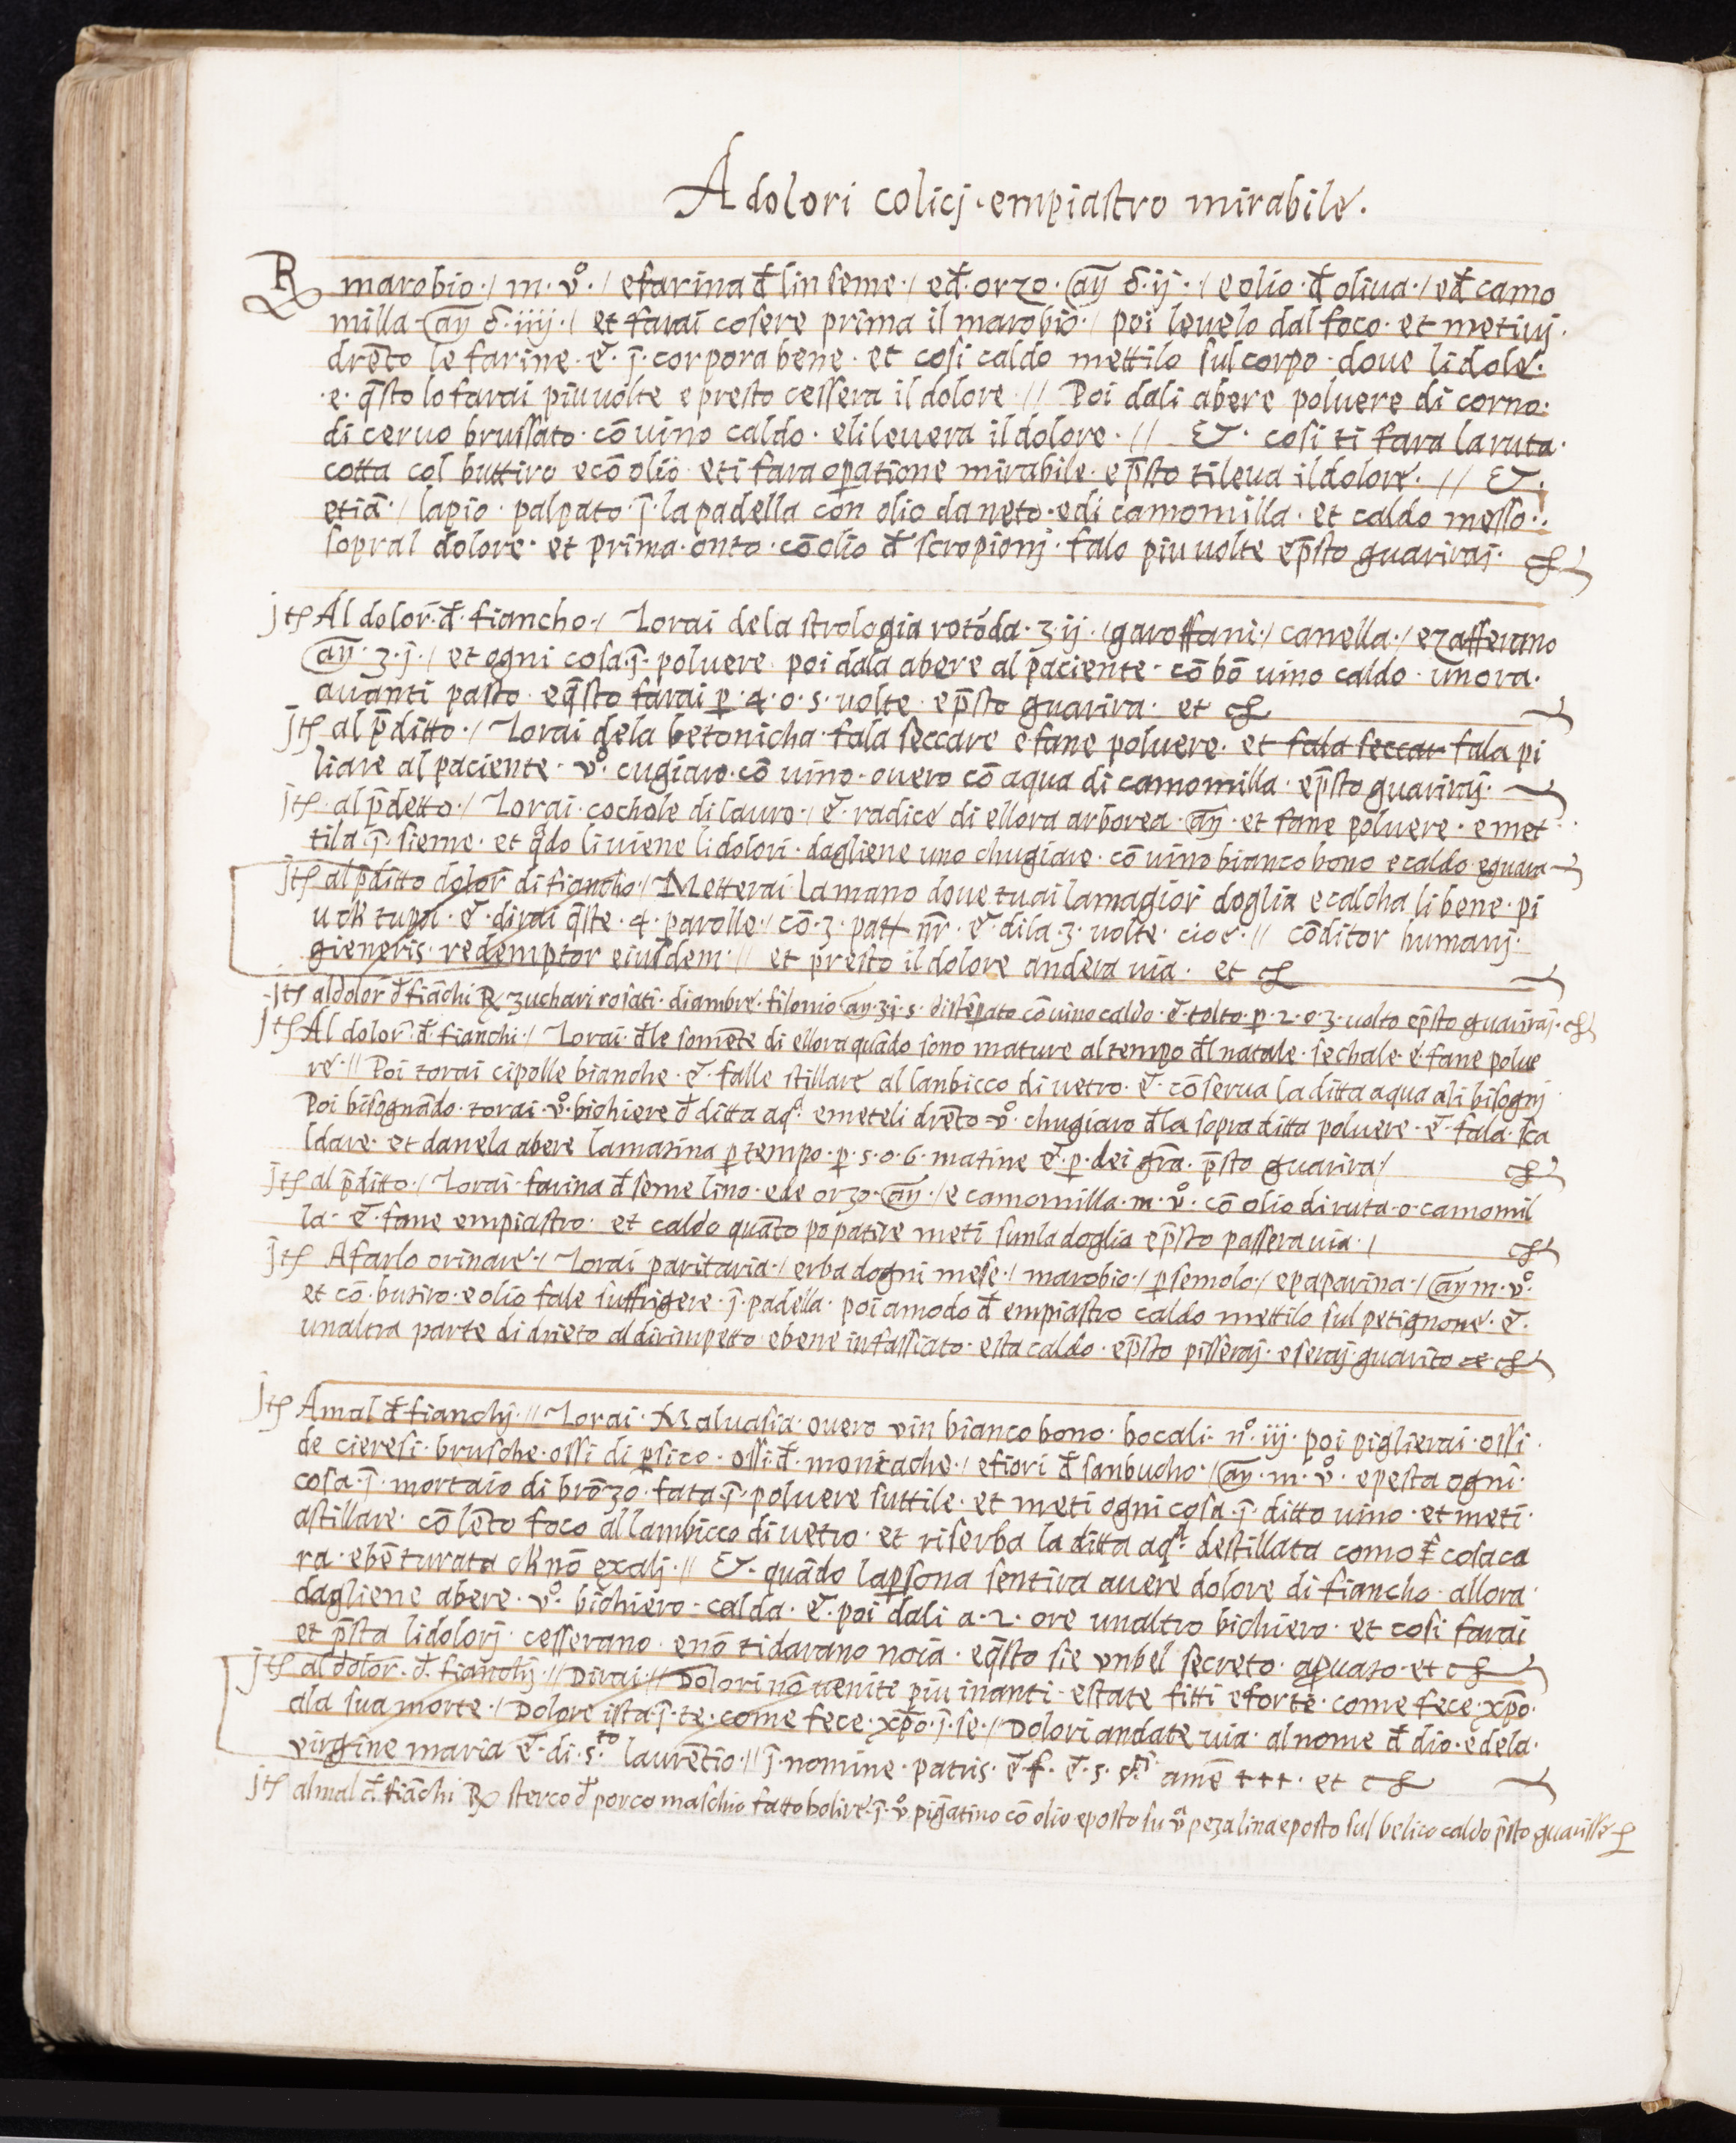 A dolori colicj · empiastro mirabile ·
R marobio · / m · v̊ · / e farina đ lin seme · / eđ · orzo · ãy ʒ̄ · ij · · / e olio · đ oliua · / eđ camo
milla · ãy ʒ̄ · iiij · / et farai cosere prima il marobio · / poi leuelo dal foco · et metiuj ·
drēto le farine · & · j̄ · corpora bene · et cosi caldo mettilo sul corpo · doue li dole ·
· e · q̄sto lo farai piu uolte e presto cessera il dolore · // Poi dali abere poluere di corno ·
di ceruo brussato · cō uino caldo · eli leuera il dolore · // & · cosi ti fara la ruta ·
cotta col buttiro e cō olio · eti fara oꝑatione mirabile · e p̄sto ti leua il dolore · // & ·
etiā · / lapio · palpato · j̄ · la padella con olio daneto · e di camomilla · et caldo messo · ·
sopral dolore · et prima · onto · cō olio đ scropionj · falo piu uolte e p̄sto guariraj ·
jtē Al dolor̄ · đ · fiancho · / Torai dela strologia rotōda · ʒ · ij · / garoffani · / canella · / e zafferano
ãy · ʒ · j̄ · / et ogni cosa · j̄ · poluere · poi dala abere al paciente · cō bō uino caldo · unora ·
auanti pasto · e q̄sto farai ꝑ · 4 · o · 5 · uolte · e p̄sto guarira · et
jtē al p̄ditto · / Torai dela betonicha · fala seccare e fane poluere · et fala seccar fala pi
liare al paciente · v̊ · cugiaro · cō uino · ouero cō aqua di camomilla · e p̄sto guariraj ·
jtē · al p̄detto · / Torai · cochole di lauro · / & · radice di ellora arborea · ãy · et fane poluere · e met
tila · j̄ · sieme · et q̊do li uiene li dolori · dagliene uno chugiare · cō uino bianco bono e caldo · eguara
jtē al p̄ditto dolor̄ di fiancho · / Metterai la mano doue tu ai la magior doglia e calcha li bene · pi
u cħ tu poi · & · dirai q̄ste · 4 · parolle · / cō · 3 · patr nr̄ · & · di la · 3 · uolte · cioe · // cōditor humanj ·
gieneris · redemptor eiusdem · // et presto il dolore andera uia · et
jtē al dolor đ fiāchi R zuchari rosati · diambre · filonio · ãy · ʒ · j̄ · s · distēꝑato cō uino caldo · & · tolto · ꝑ · 2 · o · 3 · uolto e p̄sto guariraj ·
jtē Al dolor̄ · đ · fianchi · / Torai · đle somēte di ellora quādo sono mature al tempo đl natale · sechale · & · fane polue
re · // Poi torai cipolle bianche · & · falle stillare al lanbicco di uetro · & · cōserua la ditta aqua ali bisognj ·
Poi bisognādo · torai · v̊ · bichiere đ ditta aqᵃ · e meteli drēto v̊ · chugiaro đla sopra ditta poluere · & · fala · sca
ldare · et danela abere la matina ꝑ tempo · ꝑ · 5 · o · 6 · matine & · ꝑ · dei grā · p̄sto guarira /
jtē al p̄ditto · / Torai · farina đ seme lino · e de orzo · ãy · / e camomilla · m · v̊ · cō olio di ruta · o · camomil
la · & · fane empiastro · et caldo quāto po patire meti sunla doglia e p̄sto passera uia · /
jtē A farlo orinare · / Torai paritaria · / erba dogni mese · / marobio · / ꝑsemolo · / e paparina · / ãy m · v̊ ·
et cō · butiro · e olio fale suffrigere · j̄ · padella · poi a modo đ empiastro caldo mettilo sul petignone · & ·
unaltra parte di drieto al dirimpetto ebene infassiato · esta caldo · e p̄sto pisseraj · e seraj guarito
jtē A mal đ fianchj · // Torai · Maluasia · ouero vin bianco bono · bocali · n̊ · iij · poi piglierai · ossi ·
de cieresi · brusche · ossi di ꝑsico · ossi · đ · moniache · / e fiori đ sanbucho · / ãy · m · v̊ · e pesta ogni ·
cosa · j̄ · mortaio di brōzo · fata · j̄ · poluere suttile · et meti ogni cosa · j̄ · ditto uino · et meti ·
astillare · cō lēto foco al lambicco di uetro · et riserba la ditta aqᵃ · destillata como · cosa ca
ra · e bē turata cħ nō exalj · // & · quādo la ꝑsona sentira auere dolore di fiancho · allora ·
dagliene abere · v̊ · bichiero · calda · & · poi dali a · 2 · ore unaltro bichiero · et cosi farai
et p̄sta li dolorj · cesserano · e nō ti darano noia · e q̄sto sie vnbel secreto · aꝓuato · et
jtē al dolor̄ · đ · fianchj · // Dirai · // Dolori nō uenite piu inanti · estate fitti e forte · come fece · xp̄o ·
ala sua morte · / Dolore ista · j̄ · te · come fece · xp̄o · j̄ · se · // Dolori andate uia · al nome đ dio · e dela ·
virgine maria & · di · s · ᵗᵒ laurētio · // j̄ · nomine · patris · & f · & · s · sᵗⁱ amē +++ · et
jtē al mal đ fiāchi R sterco đ porco maschio fatto bolire · j̄ · v̊ pignatino cō olio e posto su v̊ peza lina e posto sul belico caldo p̄sto guarisse